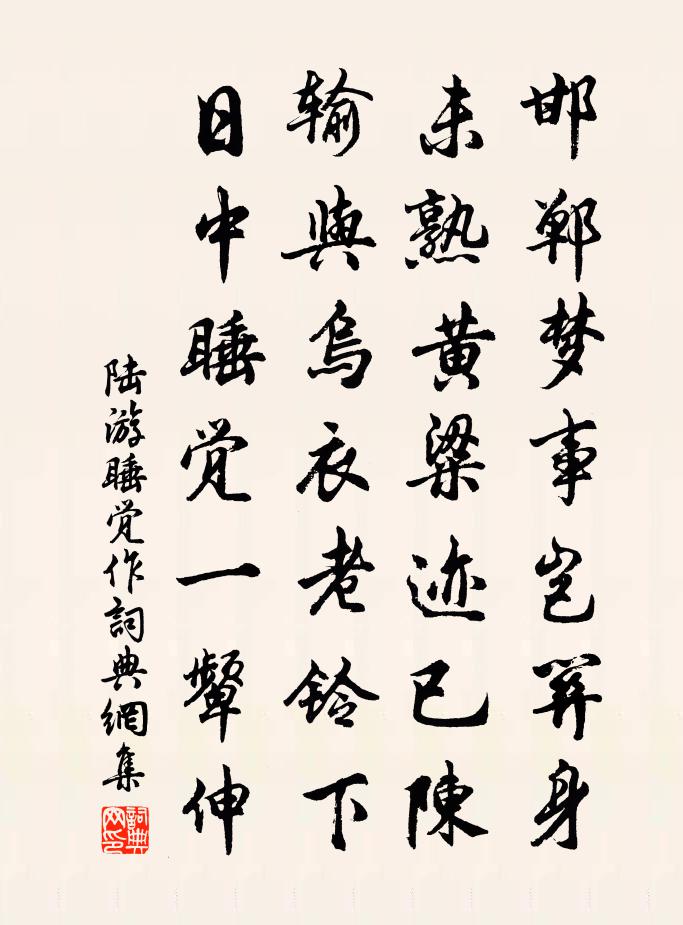 邯鄲梦事岂關身
未熟黄粱迹已陳
输與烏衣老鈴下
日中睡觉一顰伸
陆游睡觉作詞典網集
詞典网印